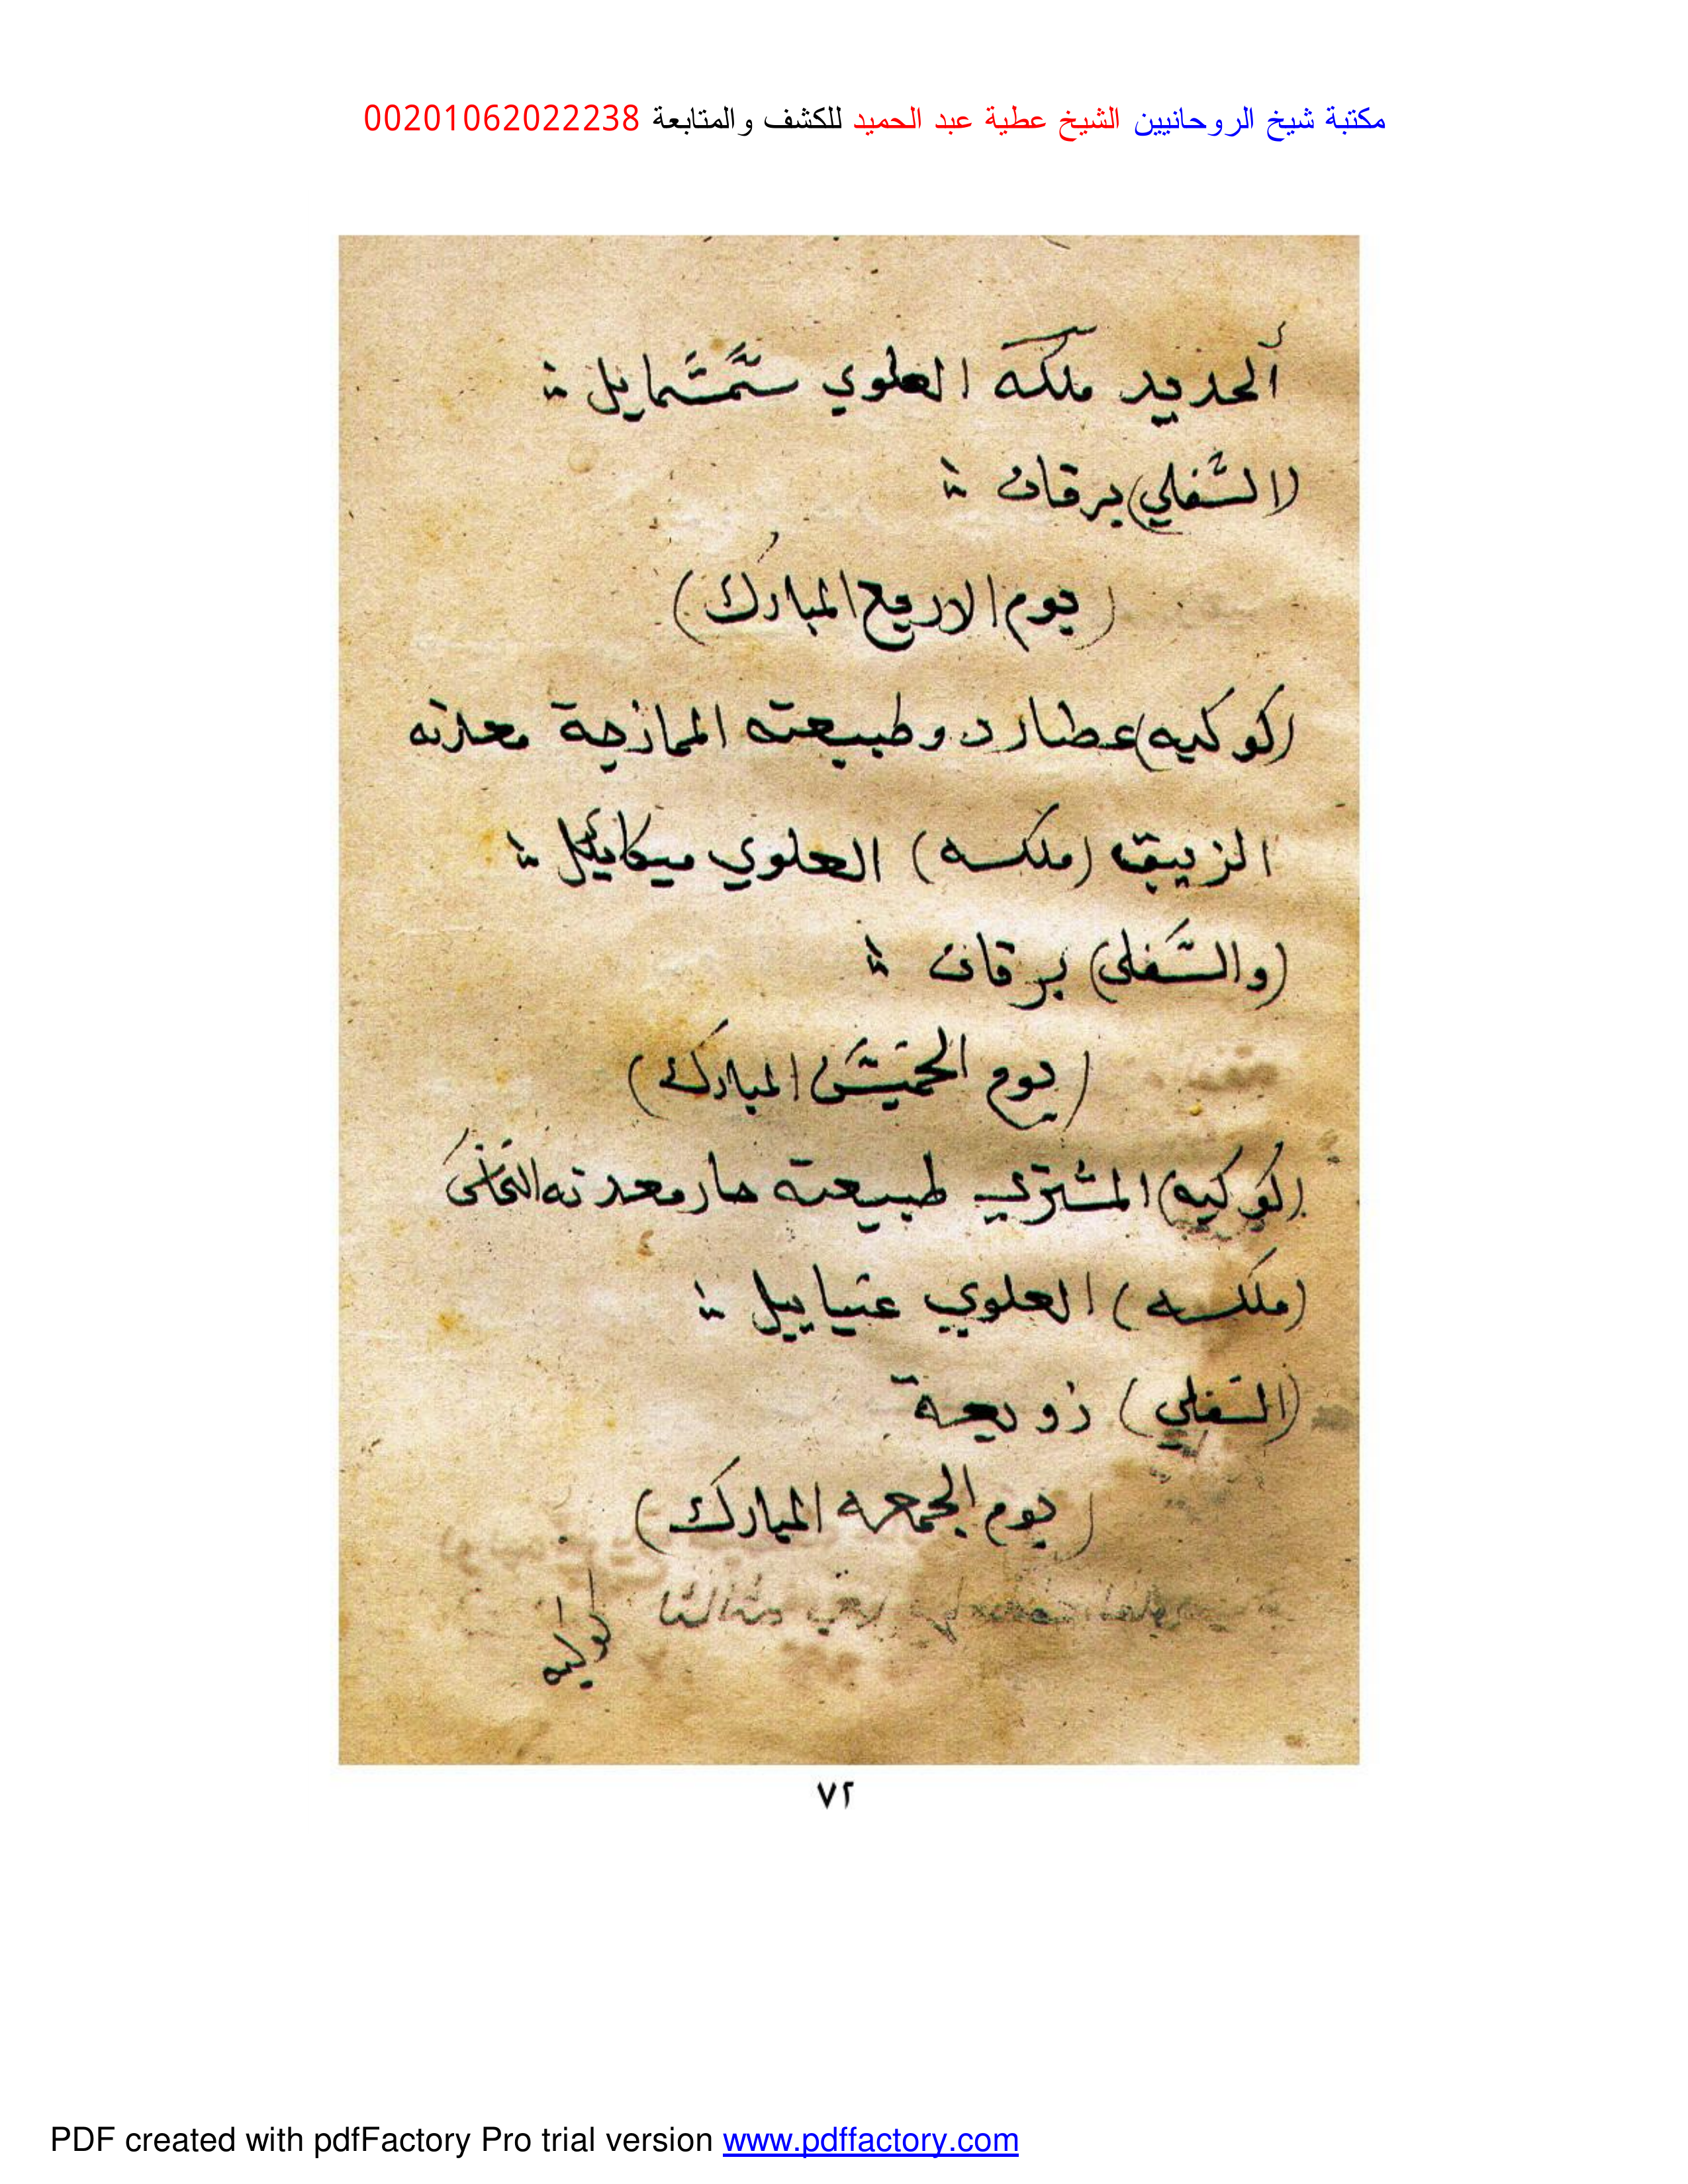 مكتبة شيخ الروحانيين الشيخ عطية عبد الحميد للكشف والمتابعة 00201062022238
ألحديد ملكه العلوي سَمْسَمايل
(السُّفلي) برقان
(يوم الاربع المبارك)
(كوكبه) عطارد وطبيعته الممازجة معدنه
الزيبق (ملكه) العلوي ميكاييل
(والسَّفلى) برقان
(يوم الخميس المبارك)
(كوكبه) المشتري طبيعته حار معدنه النحاس
(ملكه) العلوي عنياييل
(السفلي) زوبعة
(يوم الجمعه المبارك)
كوكبه
٧٢
PDF created with pdfFactory Pro trial version www.pdffactory.com